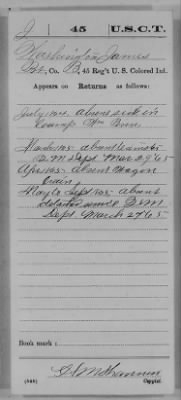 J 45 U.S.C.T.
Washington James
Pvt, Co. B, 45 Reg't U. S. Colored Inf.
Appears on Returns as follows:
July 1864, absent sick in
Camp Wm Penn
Mach 1865 absent teamster
Q.M Dept. Mar 29/65
Apr 1865 Absent Wagon
Train
May to Sept 1865 absent
detached service Q.M
Dept. March 27/65
Book mark:
(546)
Copyist.